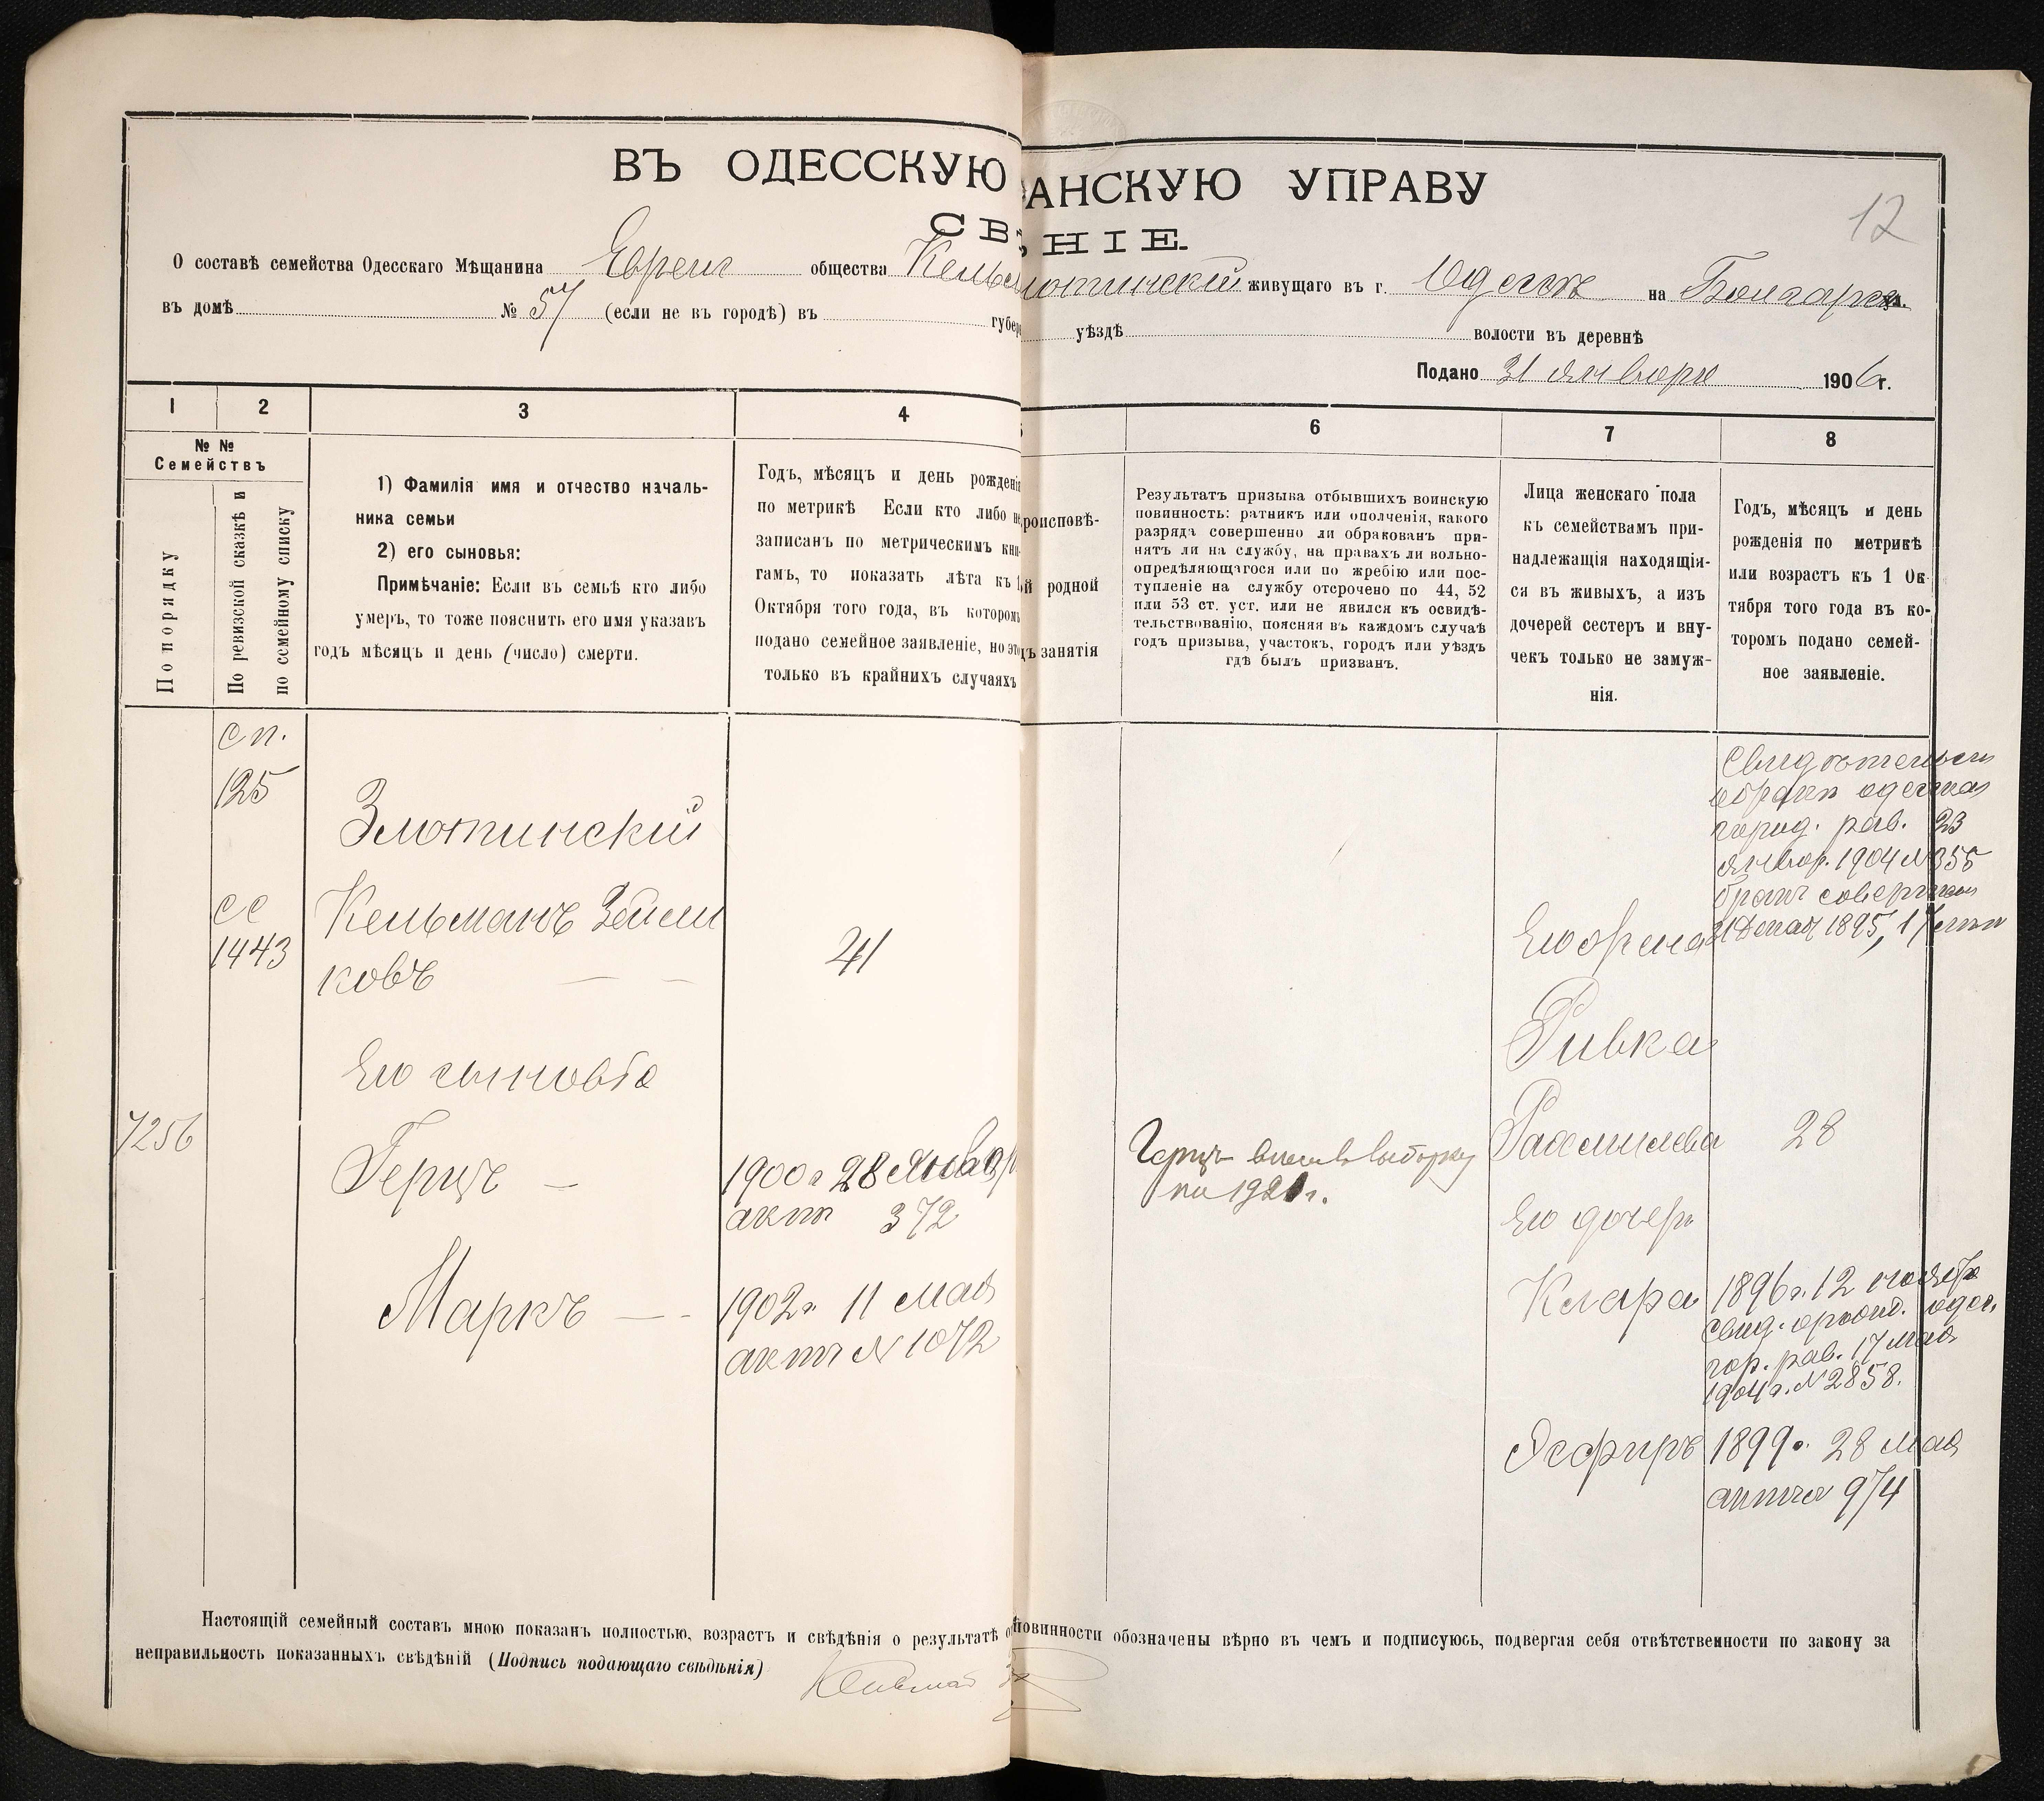 ВЪ ОДЕССКУЮ АНСКУЮ УПРАВУ
12
СВ НІЕ.
О составѣ семейства Одесскаго Мѣщанина Евреич общества Кельм лотинскій живущаго въ г. Одессѣ на Болгарск ул.
въ домѣ № 57 (если не въ городѣ) въ губер уѣздѣ волости въ деревнѣ
Подано 31 января 1906 г.
1 2 3 4 5 6 7 8
№ №
Семействъ
По порядку
По ревизской сказкѣ и
по семейному списку
1) Фамилія имя и отчество началь-
ника семьи
2) его сыновья:
Примѣчаніе: Если въ семьѣ кто либо
умеръ, то тоже пояснить его имя указавъ
годъ мѣсяцъ и день (число) смерти.
Годъ, мѣсяцъ и день рожденія
по метрикѣ Если кто либо не
записанъ по метрическимъ кни-
гамъ, то показать лѣта къ 1
Октября того года, въ которомъ
подано семейное заявленіе, но это
только въ крайнихъ случаяхъ
роисповѣ-
й родной
ъ занятія
Результатъ призыва отбывшихъ воинскую
повинность: ратникъ или ополченія, какого
разряда совершенно ли обракованъ при-
нятъ ли на службу, на правахъ ли вольно-
опредѣляющагося или по жребію или пос-
тупленіе на службу отсрочено по 44, 52
или 53 ст. уст. или не явился къ освидѣ-
тельствованію, поясняя въ каждомъ случаѣ
годъ призыва, участокъ, городъ или уѣздъ
гдѣ былъ призванъ.
Лица женскаго пола
къ семействамъ при-
надлежащія находящія-
ся въ живыхъ, а изъ
дочерей сестеръ и вну-
чекъ только не замуж-
нія.
Годъ, мѣсяцъ и день
рожденія по метрикѣ
или возрастъ къ 1 Ок-
тября того года въ ко-
торомъ подано семей-
ное заявленіе.
сп.
125
сс
1443
7256
Злотинскій
Кельманъ Зейли
ковъ
41
Его сыновья
Герцъ —
1900 г 28 Январ
актъ 372
Маркъ —
1902 г. 11 мая
актъ № 1072
Герцъ внес. въ выборку
на 1921 г.
Его жена
Ривка
Рахмилева
28
Свидѣтельст
о бракѣ одесскаг
город. рав. 23
январ. 1904 № 355
бракъ совершен
1895, 17
Его дочери
Клара
1896 г. 12 ноября
свид. одес.
гор. рав. 17 мая
1904 г. № 2858.
Эсфирь
1899 г. 28 мая
актъ 974
Настоящій семейный составъ мною показанъ полностью, возрастъ и свѣдѣнія о результатѣ о повинности обозначены вѣрно въ чемъ и подписуюсь, подвергая себя отвѣтственности по закону за
неправильность показанныхъ свѣдѣній (Подпись подающаго свѣдѣнія)
Кельман